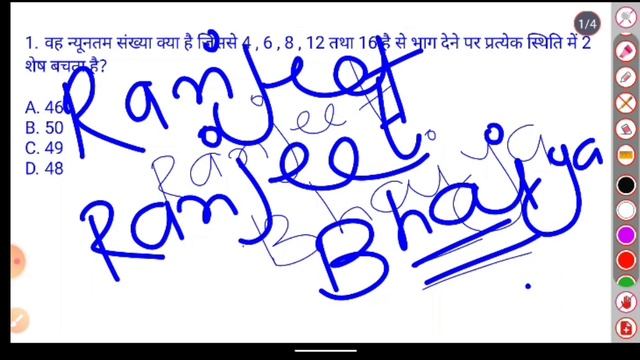 1/4
1. वह न्यूनतम संख्या क्या है जिससे 4 , 6 , 8 , 12 तथा 16 है से भाग देने पर प्रत्येक स्थिति में 2
शेष बचता है?
A. 46
B. 50
C. 49
D. 48
Ranjeet
Ranjeet
Ranjeet
Bhaiya
Bhaiya